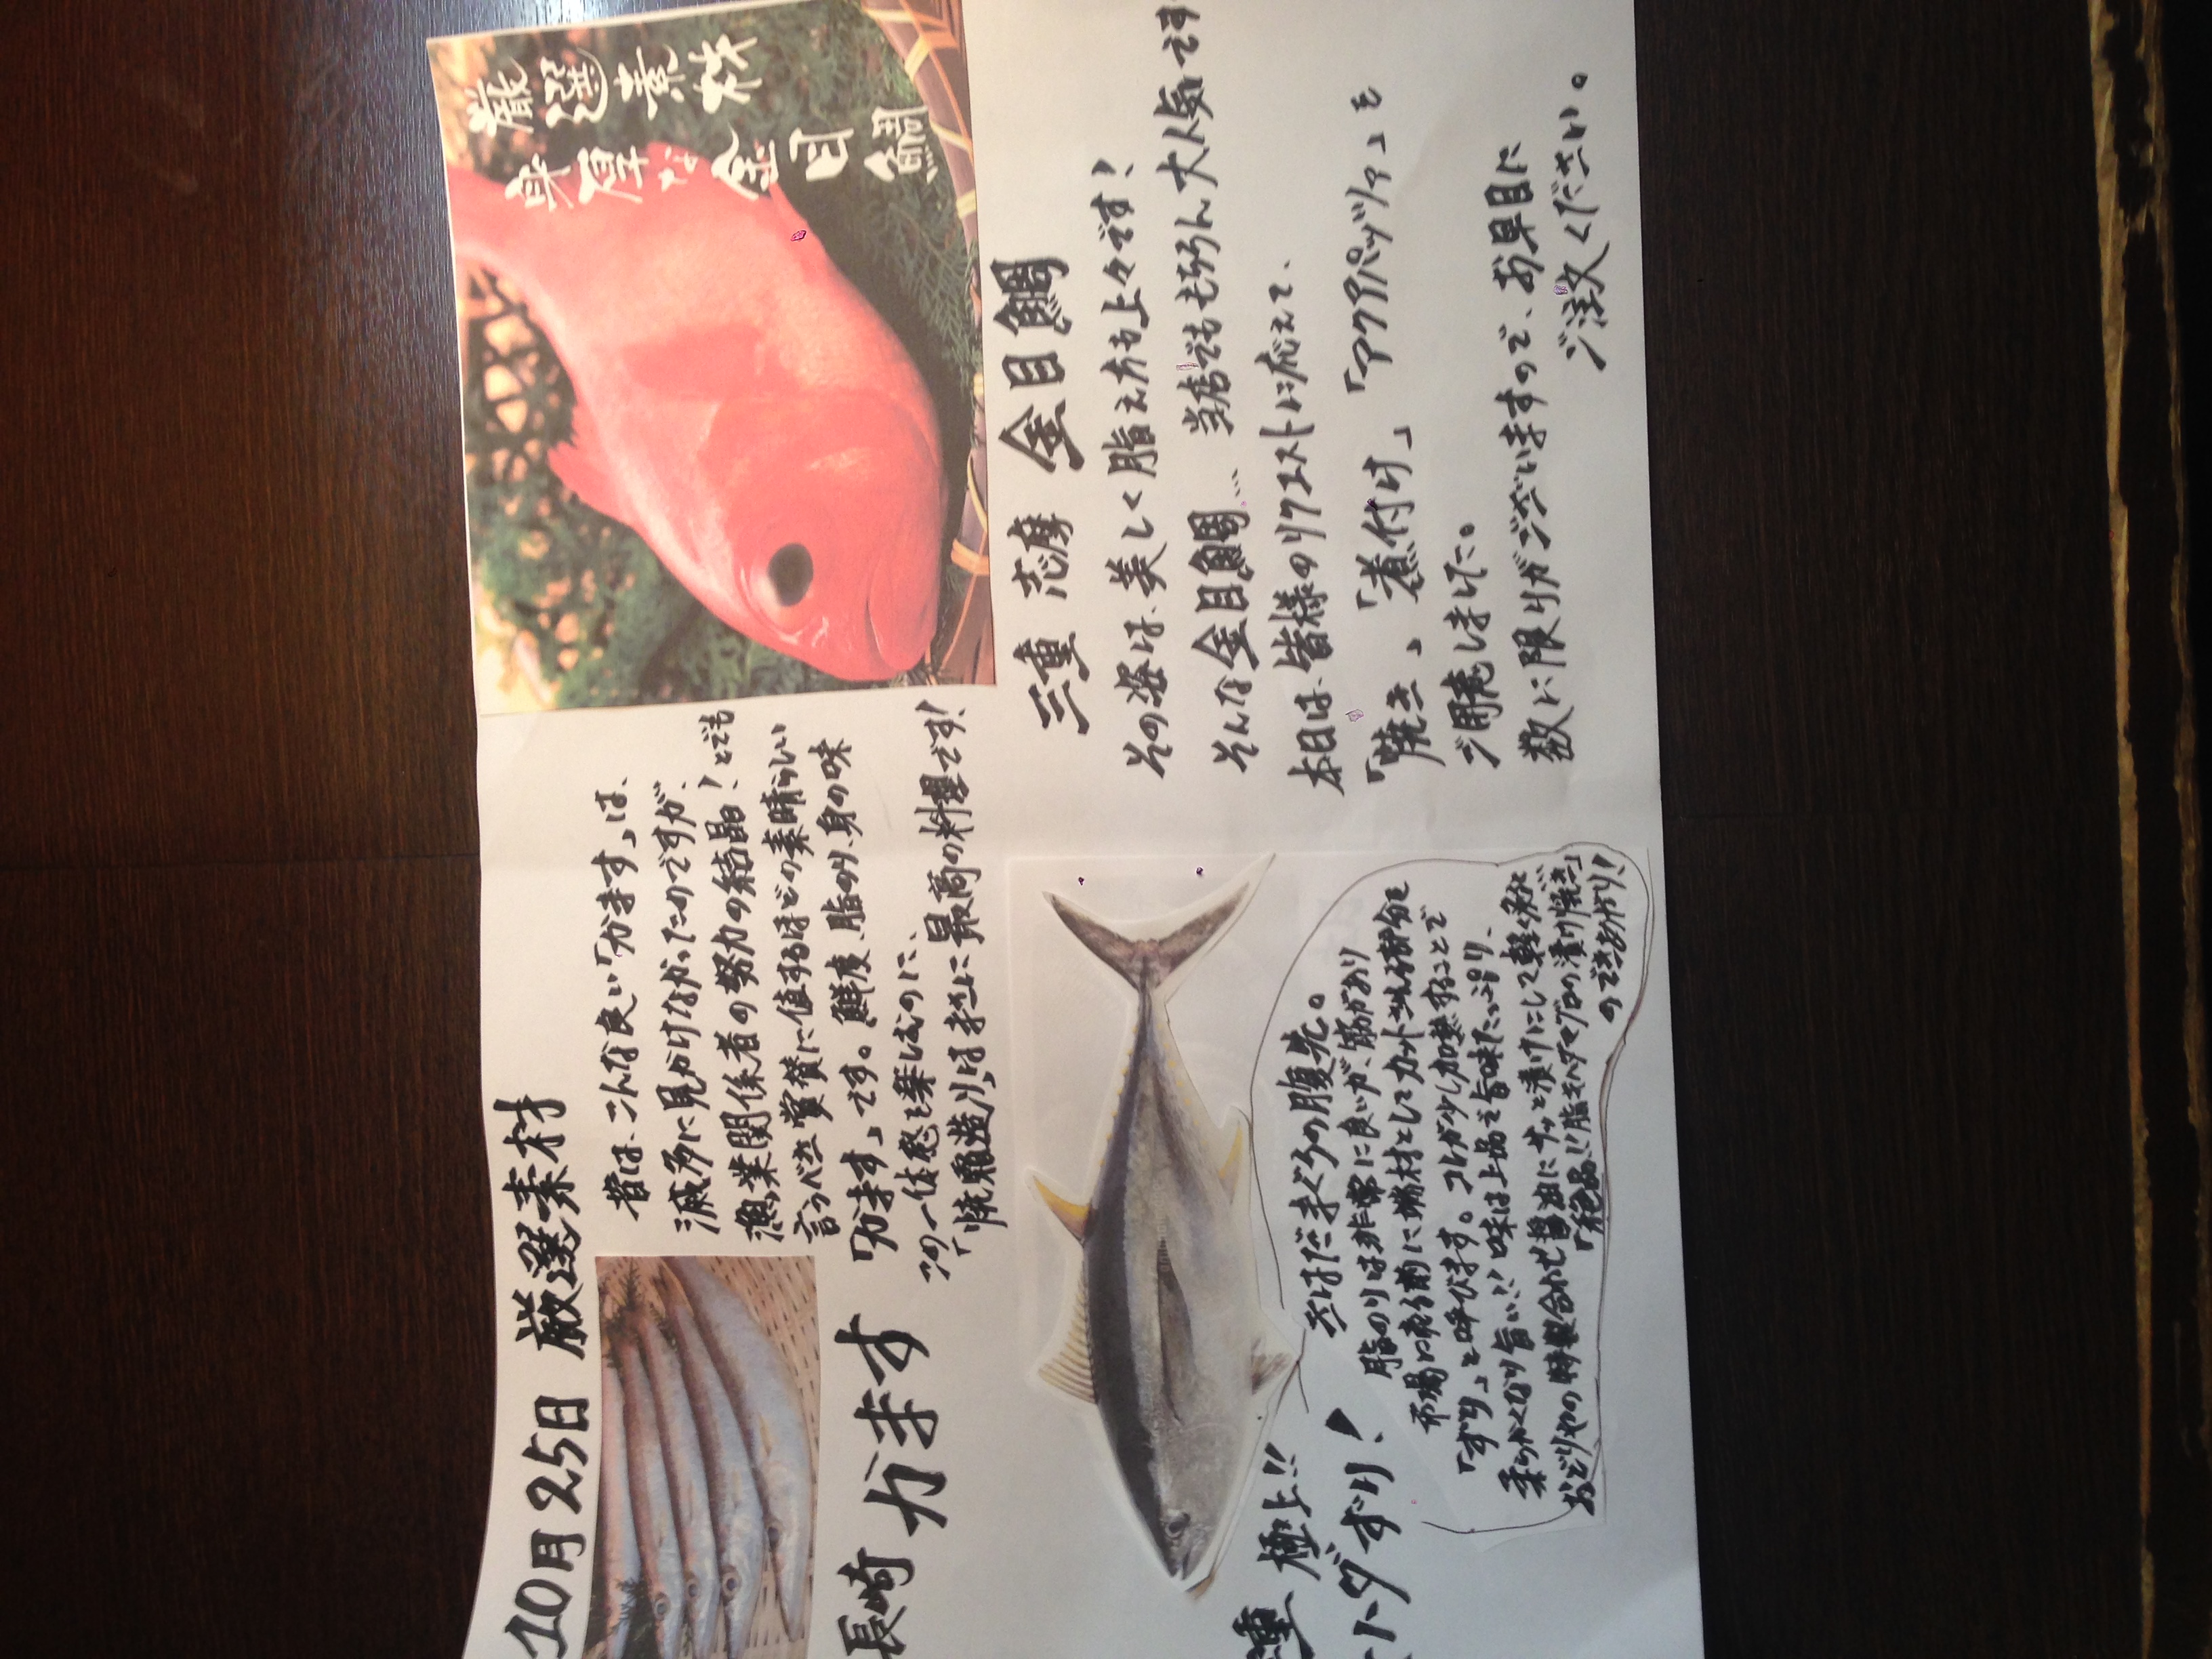 10月25日 厳選素材
昔は、こんな良い「かます」は、
滅多に見かけなかったのですが、
漁業関係者の努力の結晶！とでも
言うべき賞賛に値するほどの素晴らしい
「かます」です。鮮度、脂のり、身の味
この一体感を楽しむのに、
「焼霜造り」は本当に最高の料理です！
長崎 かます
厳選素材
身厚な金目鯛
三重 志摩 金目鯛
その姿は、美しく脂え方も上々です！
そんな金目鯛… 当店でももちろん大人気です
本日は、皆様のリクエストに応えて、
「焼き」「煮付け」「アクアパッツァ」を
ご用意しました。
数に限りがございますので、お早目に
ご注文ください。
重 極上!!
トダずり！
きはだまぐろの腹先。
脂のりは非常に良いが、筋があり
市場に売る前に端材としてカットされる部分を
「ずり」と呼びます。コレが少し加熱することで
柔らかくなり旨い!!味は上品で旨味たっぷり、
おどりやの特製合わせ醤油にサッと漬けにして軽く炙れば
「絶品!!脂キハダマグロの漬け焼き」
のできあがり！